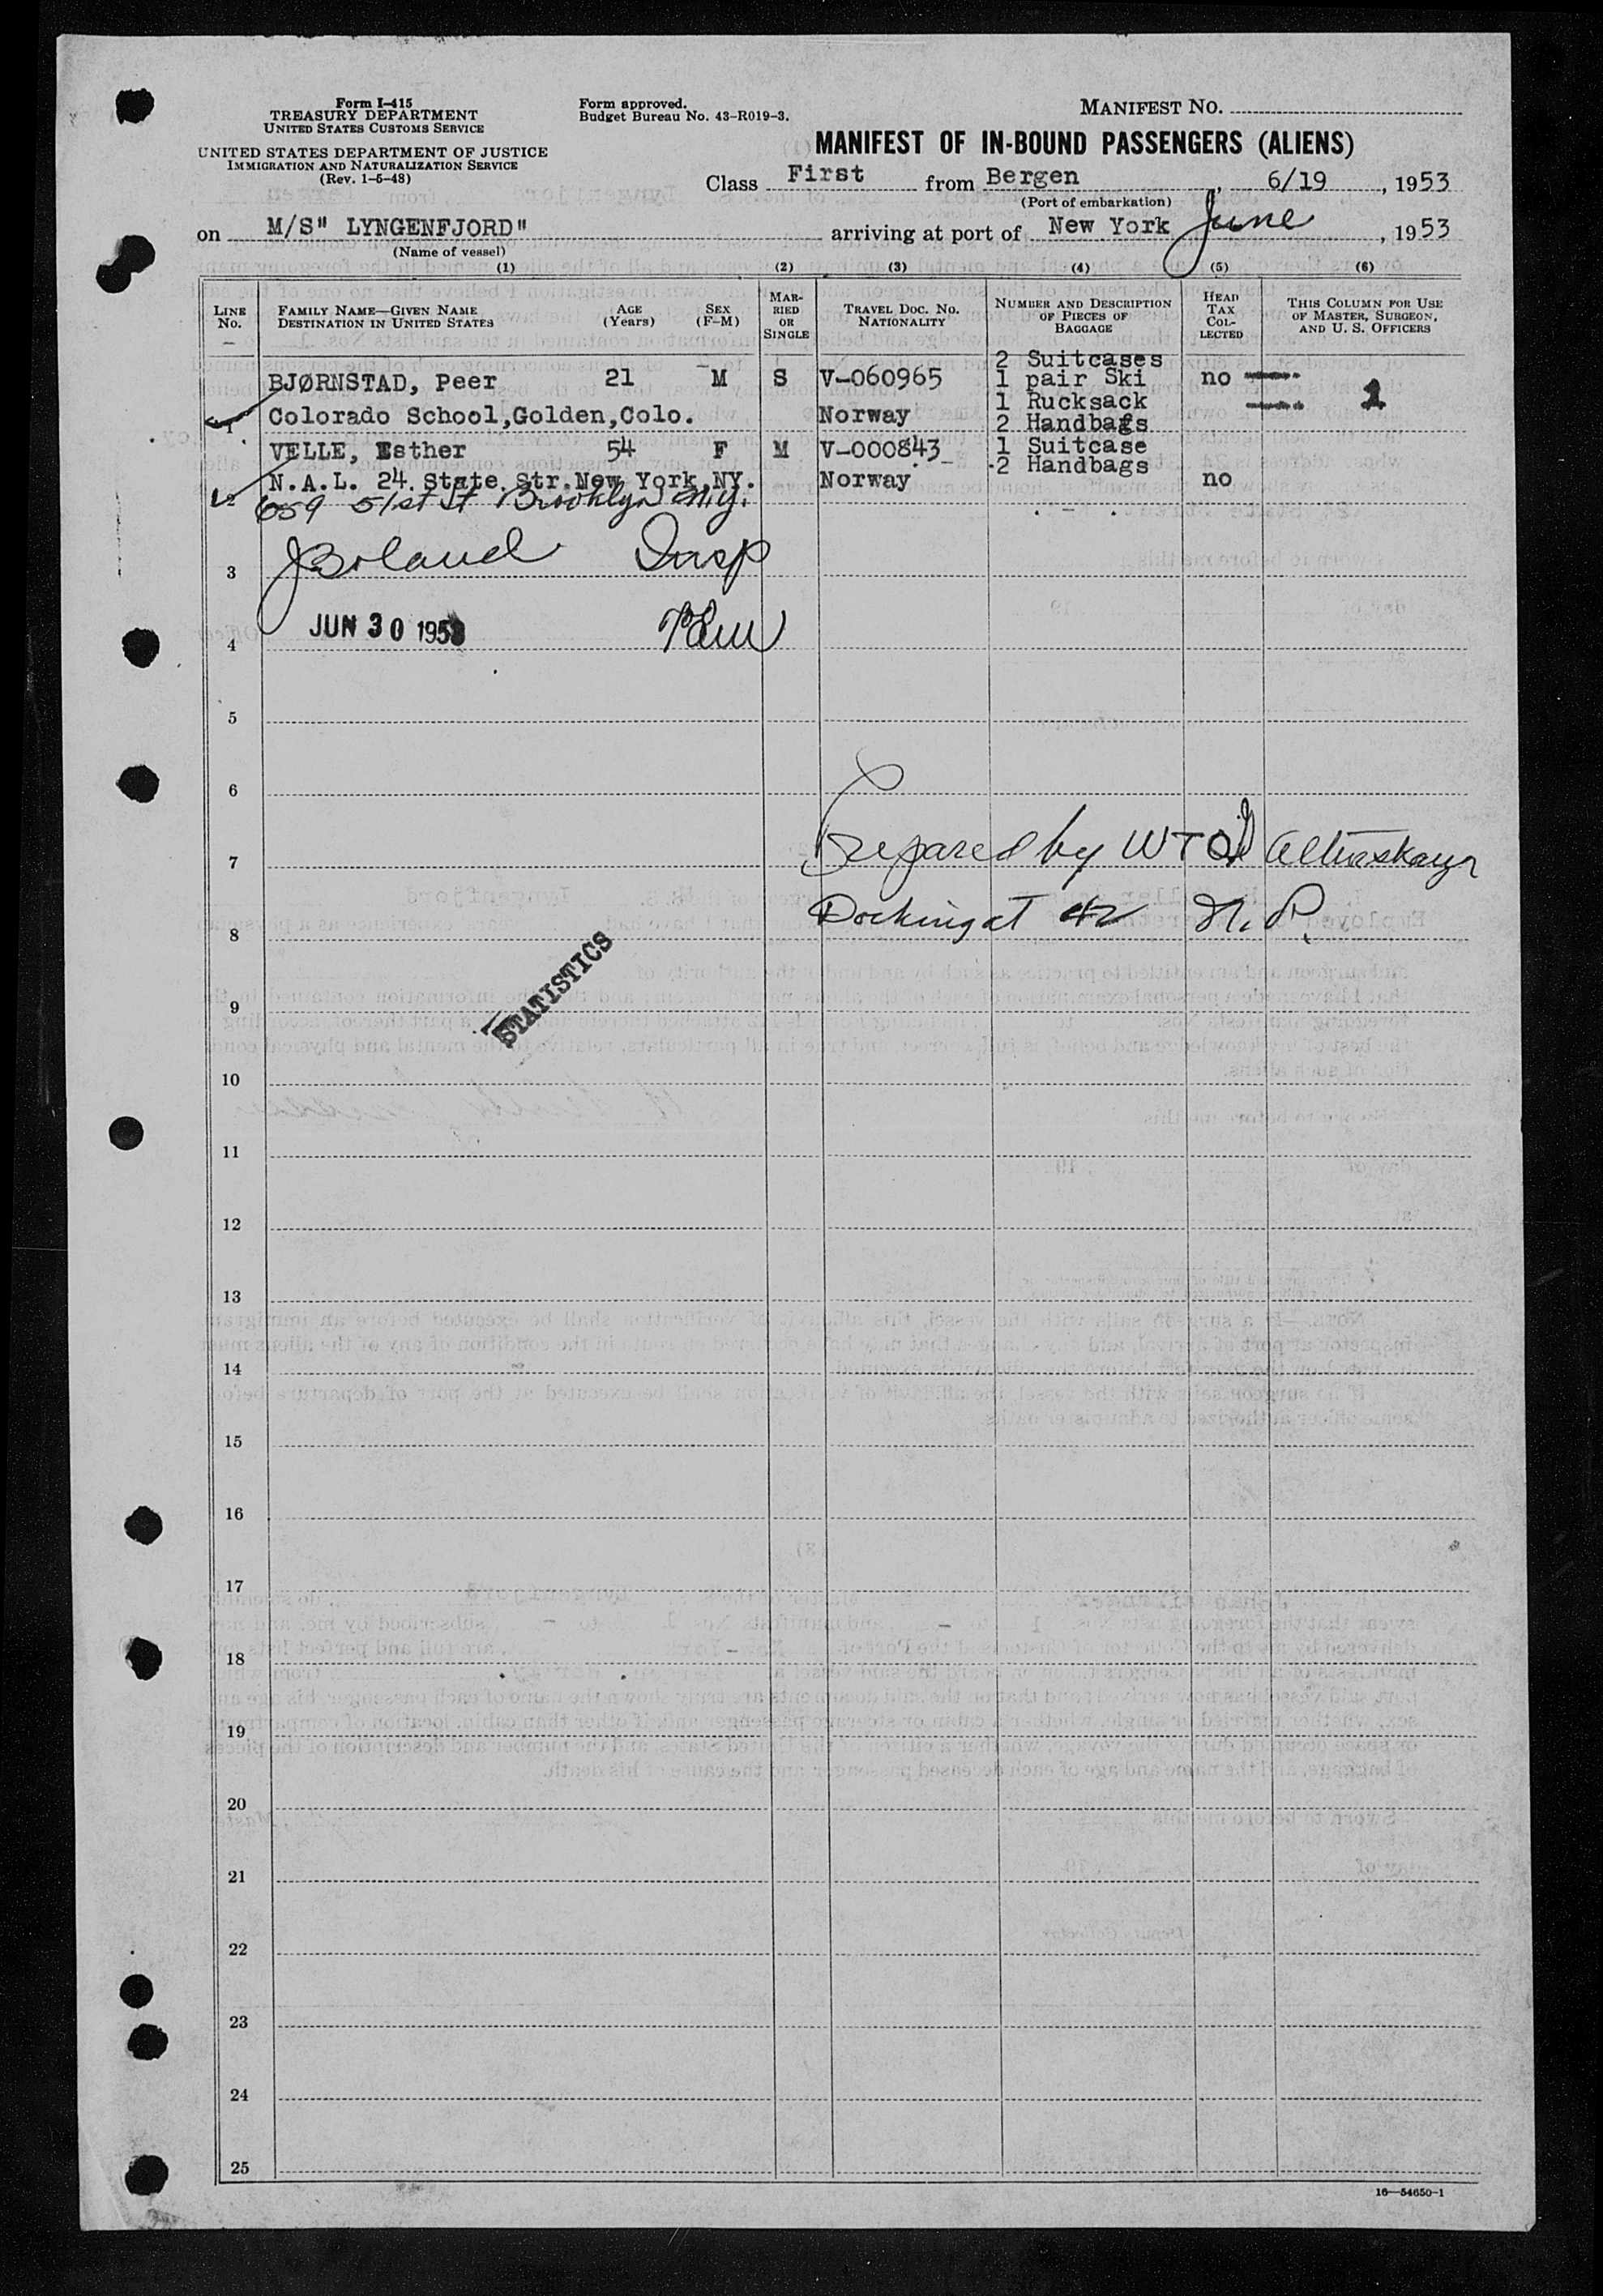 Form I-415
TREASURY DEPARTMENT
UNITED STATES CUSTOMS SERVICE
UNITED STATES DEPARTMENT OF JUSTICE
IMMIGRATION AND NATURALIZATION SERVICE
(Rev. 1-5-48)
Form approved.
Budget Bureau No. 43-R019-3.
MANIFEST NO.
MANIFEST OF IN-BOUND PASSENGERS (ALIENS)
Class First from Bergen, 6/19, 1953
(Port of embarkation)
on M/S" LYNGENFJORD" arriving at port of New York June, 1953
(Name of vessel)
(1) (2) (3) (4) (5) (6)
LINE No. FAMILY NAME—GIVEN NAME DESTINATION IN UNITED STATES AGE (Years) SEX (F-M) MARRIED OR SINGLE TRAVEL DOC. NO. NATIONALITY NUMBER AND DESCRIPTION OF PIECES OF BAGGAGE HEAD TAX COLLECTED THIS COLUMN FOR USE OF MASTER, SURGEON, AND U. S. OFFICERS
2 Suitcases
BJØRNSTAD, Peer 21 M S V-060965 1 pair Ski no
1 Rucksack
1 Colorado School,Golden,Colo. Norway 2 Handbags 1
VELLE, Esther 54 F M V-000843 1 Suitcase
2 Handbags
2 N.A.L. 24 State Str.New York,NY. Norway no
659 51st St Brooklyn N.Y.
3 JBoland Insp
4 JUN 30 1953
5
6
7 Prepared by WTO
8 Docking at 42 N. P.
STATISTICS
9
10
11
12
13
14
15
16
17
18
19
20
21
22
23
24
25
16—54650-1